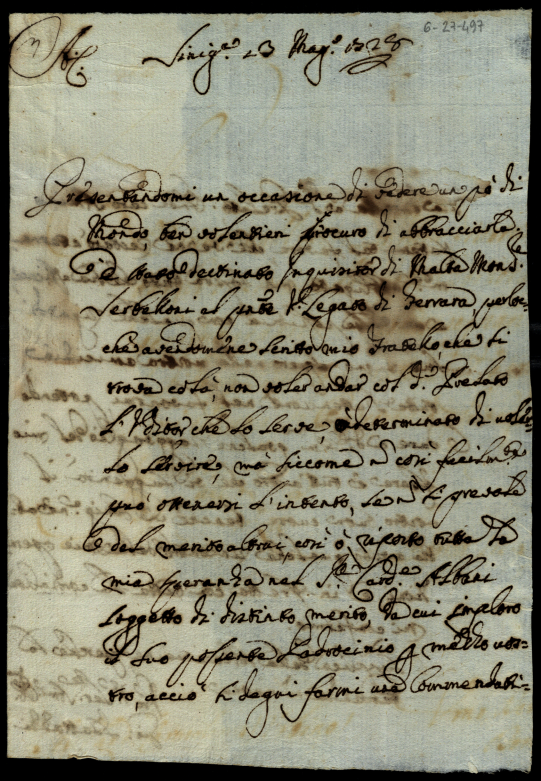 6-27-497
A. C.
Sinig.ª 23 Mag.º 1728
Presentandomi un occasione di vedere un pò di
Mondo, ben volentieri procuro di abbracciarla
È stato destinato Inquisitor di Malta Mons.r
Serbelloni al pnte V. Legato di Ferrara, perloc=
che avendomene scritto mio Fratello, che si
trova colà, non voler andar col d.º Prelato
l'Uditor che lo serve, ò determinato di voler
lo servire, mà siccome n così facilm.te
può ottenersi l'intento, se n si prevale
del merito altrui, così ò riposto tutta la
mia speranza nel S.r Card.e Albani
soggetto di distinto merito, da cui imploro
il suo possente Padrocinio p mezzo vos=
tro, acciò si degni farmi una Commendati=